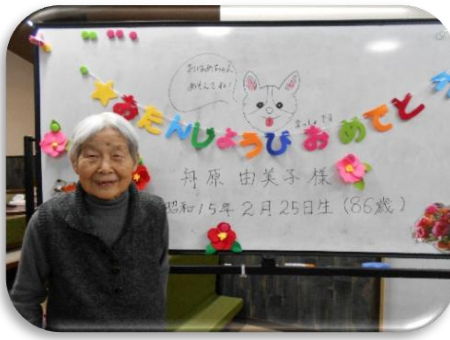 あそんでね!
おたんじょうび おめでと
舟原 由美子 様
昭和15年2月25日生(86歳)